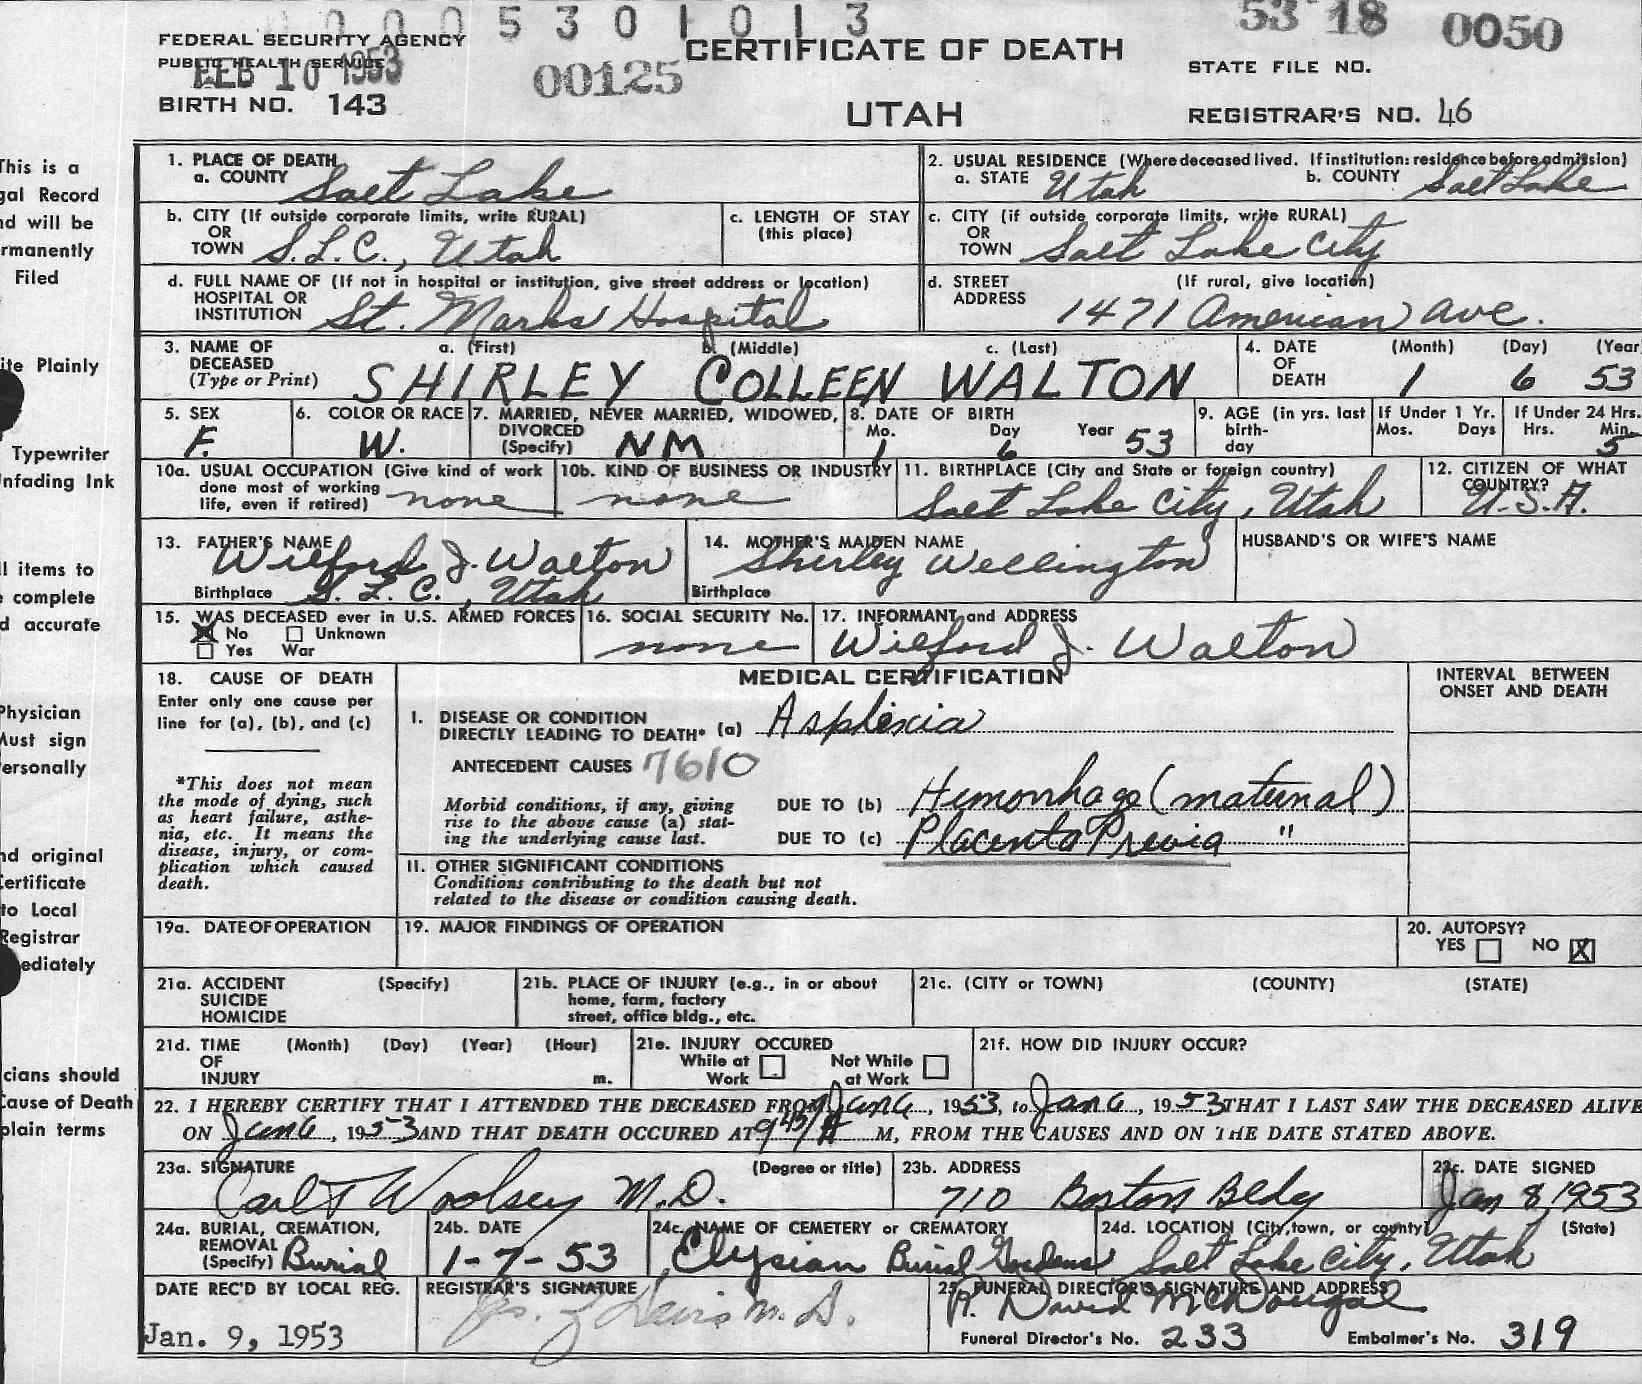 0 0 0 0 5 3 0 1 0 1 3
53 18 0050
FEDERAL SECURITY AGENCY
PUBLIC HEALTH SERVICE
FEB 10 1953
00125
CERTIFICATE OF DEATH
STATE FILE NO.
BIRTH NO. 143
UTAH
REGISTRAR'S NO. 46
This is a
gal Record
nd will be
rmanently
Filed
ite Plainly
Typewriter
nfading Ink
l items to
complete
d accurate
Physician
Must sign
ersonally
nd original
Certificate
to Local
Registrar
ediately
cians should
Cause of Death
plain terms
1. PLACE OF DEATH
a. COUNTY Salt Lake
2. USUAL RESIDENCE (Where deceased lived. If institution: residence before admission)
a. STATE Utah b. COUNTY Salt Lake
b. CITY (If outside corporate limits, write RURAL)
OR
TOWN S.L.C., Utah
c. LENGTH OF STAY
(this place)
c. CITY (if outside corporate limits, write RURAL)
OR
TOWN Salt Lake City
d. FULL NAME OF (If not in hospital or institution, give street address or location)
HOSPITAL OR
INSTITUTION St. Marks Hospital
d. STREET (If rural, give location)
ADDRESS 1471 American Ave.
3. NAME OF DECEASED (Type or Print)
a. (First) b. (Middle) c. (Last)
SHIRLEY COLLEEN WALTON
4. DATE OF DEATH (Month) (Day) (Year
1 6 53
5. SEX
F.
6. COLOR OR RACE
W.
7. MARRIED, NEVER MARRIED, WIDOWED,
DIVORCED
(Specify) NM
8. DATE OF BIRTH
Mo. Day Year
1 6 53
9. AGE (in yrs. last
birth-
day
If Under 1 Yr.
Mos. Days
If Under 24 Hrs.
Hrs. Min.
5
10a. USUAL OCCUPATION (Give kind of work
done most of working
life, even if retired) none
10b. KIND OF BUSINESS OR INDUSTRY
none
11. BIRTHPLACE (City and State or foreign country)
Salt Lake City, Utah
12. CITIZEN OF WHAT
COUNTRY?
U.S.A.
13. FATHER'S NAME
Wilford J. Walton
Birthplace S.L.C., Utah
14. MOTHER'S MAIDEN NAME
Shirley Wellington
Birthplace
HUSBAND'S OR WIFE'S NAME
15. WAS DECEASED ever in U.S. ARMED FORCES
No Unknown
Yes War
16. SOCIAL SECURITY No.
none
17. INFORMANT and ADDRESS
Wilford J. Walton
18. CAUSE OF DEATH
Enter only one cause per
line for (a), (b), and (c)
*This does not mean
the mode of dying, such
as heart failure, asthe-
nia, etc. It means the
disease, injury, or com-
plication which caused
death.
MEDICAL CERTIFICATION
INTERVAL BETWEEN
ONSET AND DEATH
I. DISEASE OR CONDITION
DIRECTLY LEADING TO DEATH* (a) Asphixia
ANTECEDENT CAUSES 7610
Morbid conditions, if any, giving
rise to the above cause (a) stat-
ing the underlying cause last.
DUE TO (b) Hemorrhage (maternal)
DUE TO (c) Placenta Previa "
II. OTHER SIGNIFICANT CONDITIONS
Conditions contributing to the death but not
related to the disease or condition causing death.
19a. DATE OF OPERATION
19. MAJOR FINDINGS OF OPERATION
20. AUTOPSY?
YES NO X
21a. ACCIDENT (Specify)
SUICIDE
HOMICIDE
21b. PLACE OF INJURY (e.g., in or about
home, farm, factory
street, office bldg., etc.
21c. (CITY or TOWN) (COUNTY) (STATE)
21d. TIME (Month) (Day) (Year) (Hour)
OF
INJURY m.
21e. INJURY OCCURED
While at Work Not While at Work
21f. HOW DID INJURY OCCUR?
22. I HEREBY CERTIFY THAT I ATTENDED THE DECEASED FROM Jan 6, 1953, to Jan 6, 1953 THAT I LAST SAW THE DECEASED ALIVE
ON Jan 6, 1953 AND THAT DEATH OCCURED AT 9 45/A M, FROM THE CAUSES AND ON THE DATE STATED ABOVE.
23a. SIGNATURE (Degree or title)
Carl T Woolsey M.D.
23b. ADDRESS
710 Boston Bldg
23c. DATE SIGNED
Jan 8, 1953
24a. BURIAL, CREMATION,
REMOVAL
(Specify) Burial
24b. DATE
1-7-53
24c. NAME OF CEMETERY or CREMATORY
Elysian Burial Gardens
24d. LOCATION (City, town, or county) (State)
Salt Lake City, Utah
DATE REC'D BY LOCAL REG.
Jan. 9, 1953
REGISTRAR'S SIGNATURE
M.D.
25. FUNERAL DIRECTOR'S SIGNATURE AND ADDRESS
David McDougal
Funeral Director's No. 233 Embalmer's No. 319